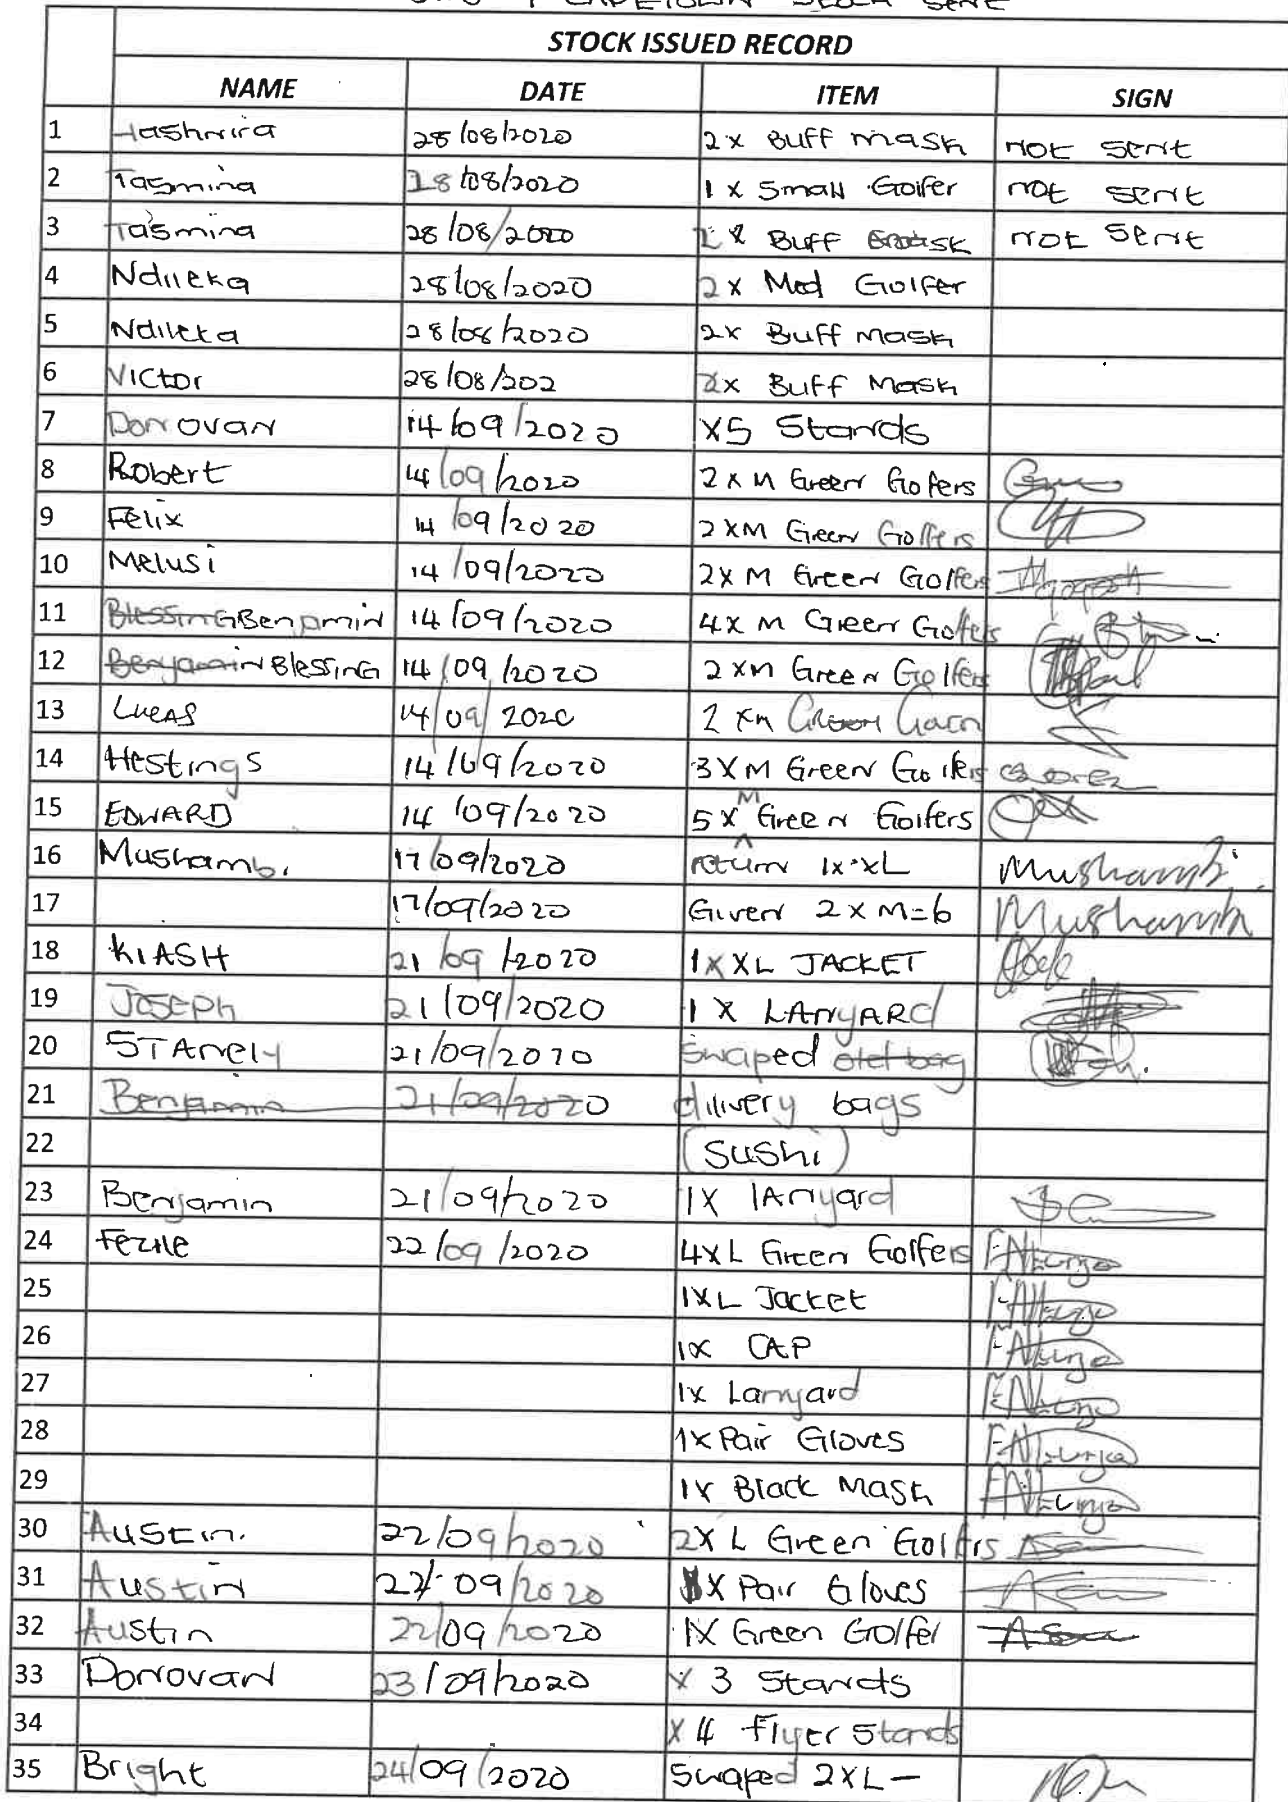 CAPETOWN STOCK SENT
STOCK ISSUED RECORD
NAME DATE ITEM SIGN
1 Tashmira 28/08/2020 2x Buff mask not sent
2 Tasmina 28/08/2020 1x Small Golfer not sent
3 Tasmina 28/08/2020 Buff not sent
4 Ndileka 28/08/2020 2x Med Golfer
5 Ndileka 28/08/2020 2x Buff Mask
6 Victor 28/08/202 2x Buff Mask
7 Donovan 14/09/2020 x5 Stands
8 Robert 14/09/2020 2xM Green Gofers
9 Felix 14/09/2020 2xM Green Golfers
10 Melusi 14/09/2020 2xM Green Golfers
11 Blessing Benjamin 14/09/2020 4x M Green Golfers
12 Benjamin Blessing 14/09/2020 2xM Green Golfers
13 Lucas 14/09/2020 2 xm
14 Hestings 14/09/2020 3XM Green Golfers
15 EDWARD 14/09/2020 5x M Green Golfers
16 Mushambi 17/09/2020 return 1x XL Mushambi
17 17/09/2020 Given 2xM=6 Mushambi
18 KIASH 21/09/2020 1XXL JACKET
19 Joseph 21/09/2020 1 X LAnyARd
20 STAnely 21/09/2020 Swaped bag
21 Benjamin 21/09/2020 dilivery bags
22 (Sushi)
23 Benjamin 21/09/2020 1X lAnyard
24 Fezile 22/09/2020 4xL Green Golfers
25 1XL Jacket
26 1x CAP
27 1x Lanyard
28 1x Pair Gloves
29 1x Black Mask
30 Austin. 22/09/2020 2X L Green Golfers
31 Austin 22/09/2020 X Pair Gloves
32 Austin 22/09/2020 1X Green Golfer
33 Donovan 23/09/2020 x 3 Stands
34 x 4 Flyer Stands
35 Bright 24/09/2020 Swaped 2XL-